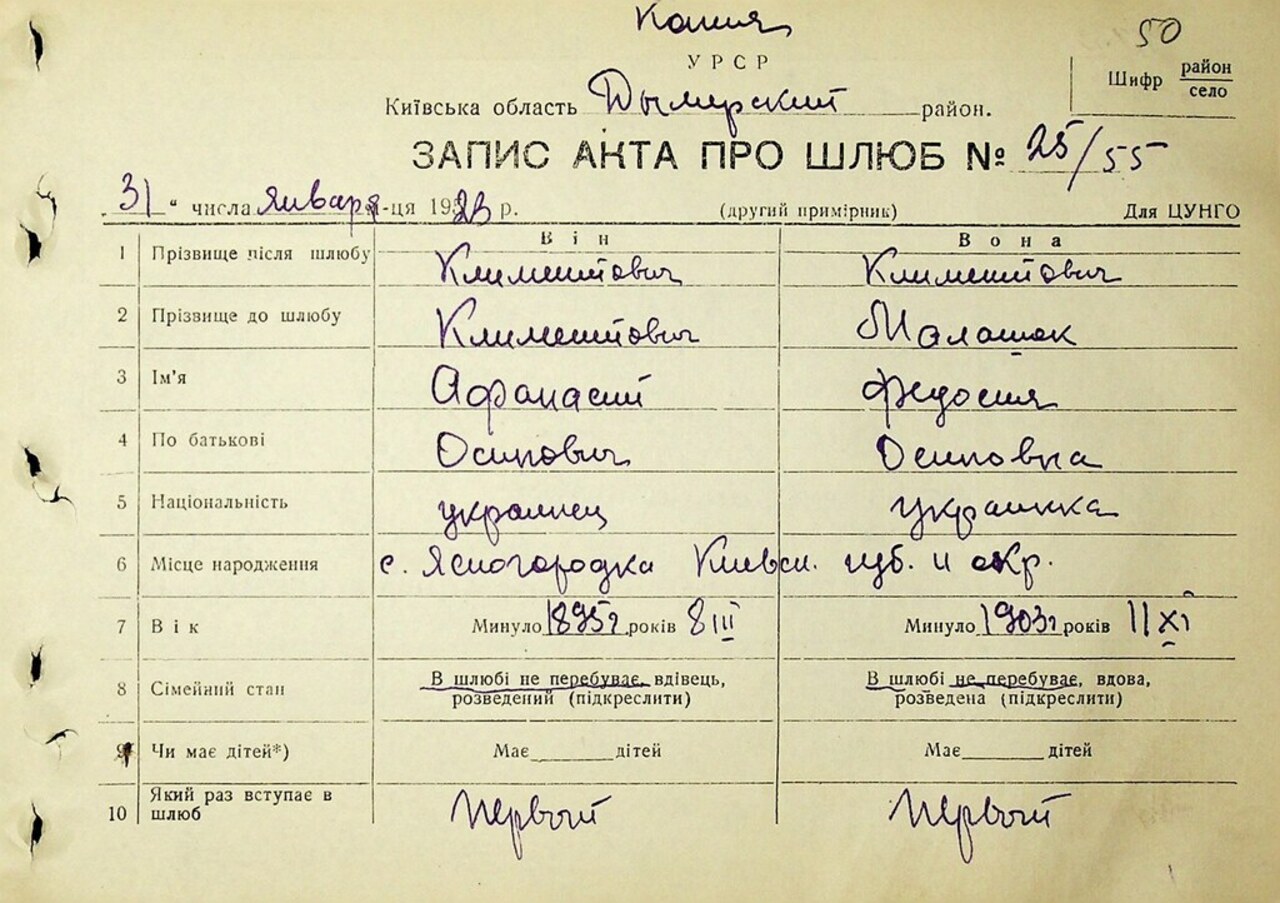 Копия
50
УРСР
Шифр район
село
Київська область Дымерский район.
ЗАПИС АКТА ПРО ШЛЮБ № 25/55
„31 “ числа января м-ця 1923 р. (другий примірник) Для ЦУНГО
Він Вона
1 Прізвище після шлюбу Климентович Климентович
2 Прізвище до шлюбу Климентович Малашок
3 Ім'я Афанасий Федосия
4 По батькові Осипович Осиповна
5 Національність украинец украинка
6 Місце народження с. Ясногородка Киевск. губ. и окр.
7 Вік Минуло 1895г. років 8 III Минуло 1903г років 11 XI
8 Сімейний стан В шлюбі не перебуває, вдівець, В шлюбі не перебуває, вдова,
розведений (підкреслити) розведена (підкреслити)
9 Чи має дітей*) Має дітей Має дітей
10 Який раз вступає в шлюб первый первый